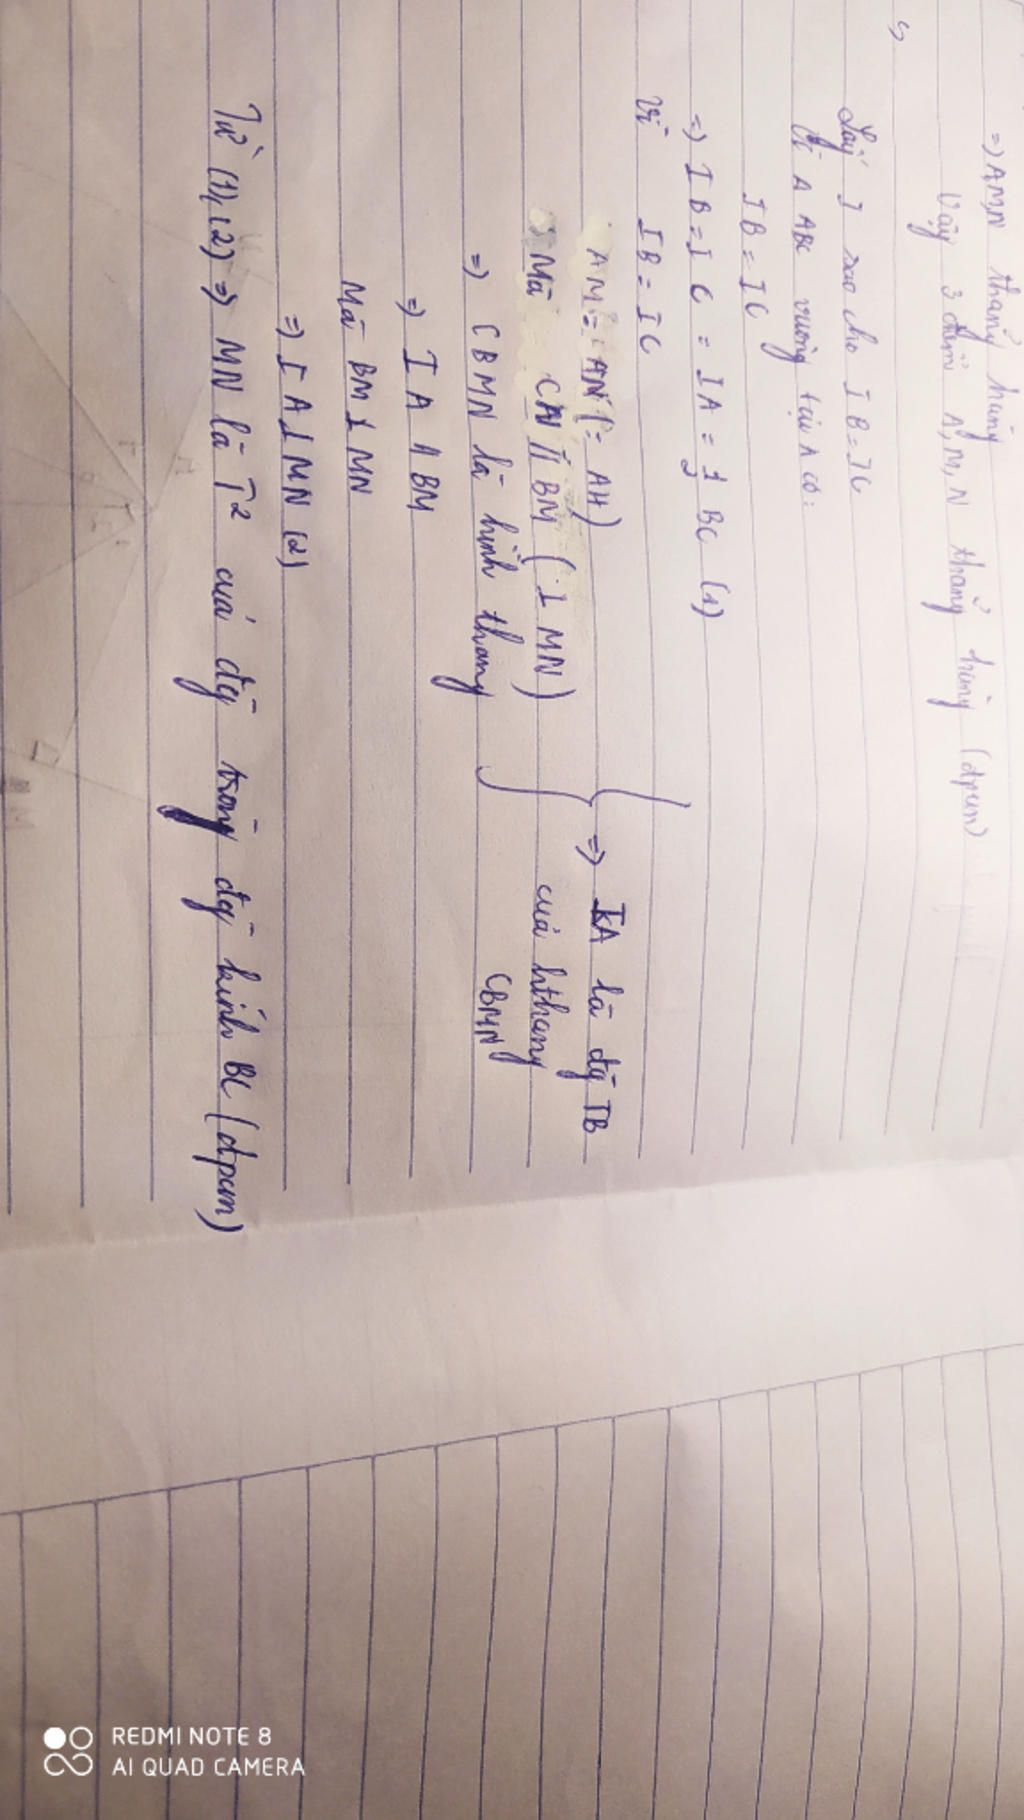 =) A,M,N thẳng hàng
Vậy 3 điểm A, M, N thẳng hàng (đpcm)
Lấy I sao cho IB = IC
Δ ABC vuông tại A có:
IB = IC
=) IB = IC = IA = 1 BC (1)
2
Vì IB = IC
AM = AN (= AH)
=) IA là đg TB
Mà CN // BM (⊥ MN)
của hthang
=) CBMN là hình thang
CBMN
=) IA // BM
Mà BM ⊥ MN
=) IA ⊥ MN (2)
Từ (1), (2) =) MN là T² của đg tròn đg kính BC (đpcm)
REDMI NOTE 8
AI QUAD CAMERA